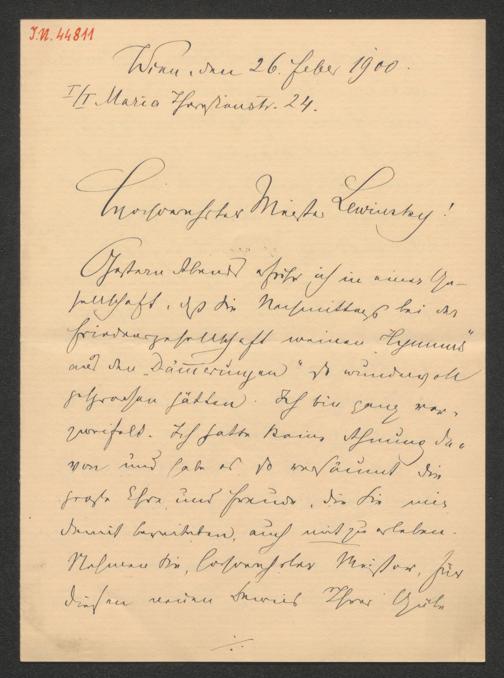 J.N. 44811
Wien, den 26. Feber 1900.
I/I Maria Theresienstr. 24.
Hochverehrter Meister Lewinsky!
Gestern Abends erfuhr ich in einer Ge-
sellschaft, daß Sie Nachmittags bei der
Friedensgesellschaft meinen "Hymnus"
aus den "Dämerungen" so wundervoll
gesprochen hätten. Ich bin ganz ver-
zweifelt. Ich hatte keine Ahnung da-
von und habe es so versäumt die
große Ehre und Freude, die Sie mir
damit bereiteten, auch mit zu erleben.
Nehmen Sie, hochverehrter Meister, für
diesen neuen Beweis Ihrer Güte
./.